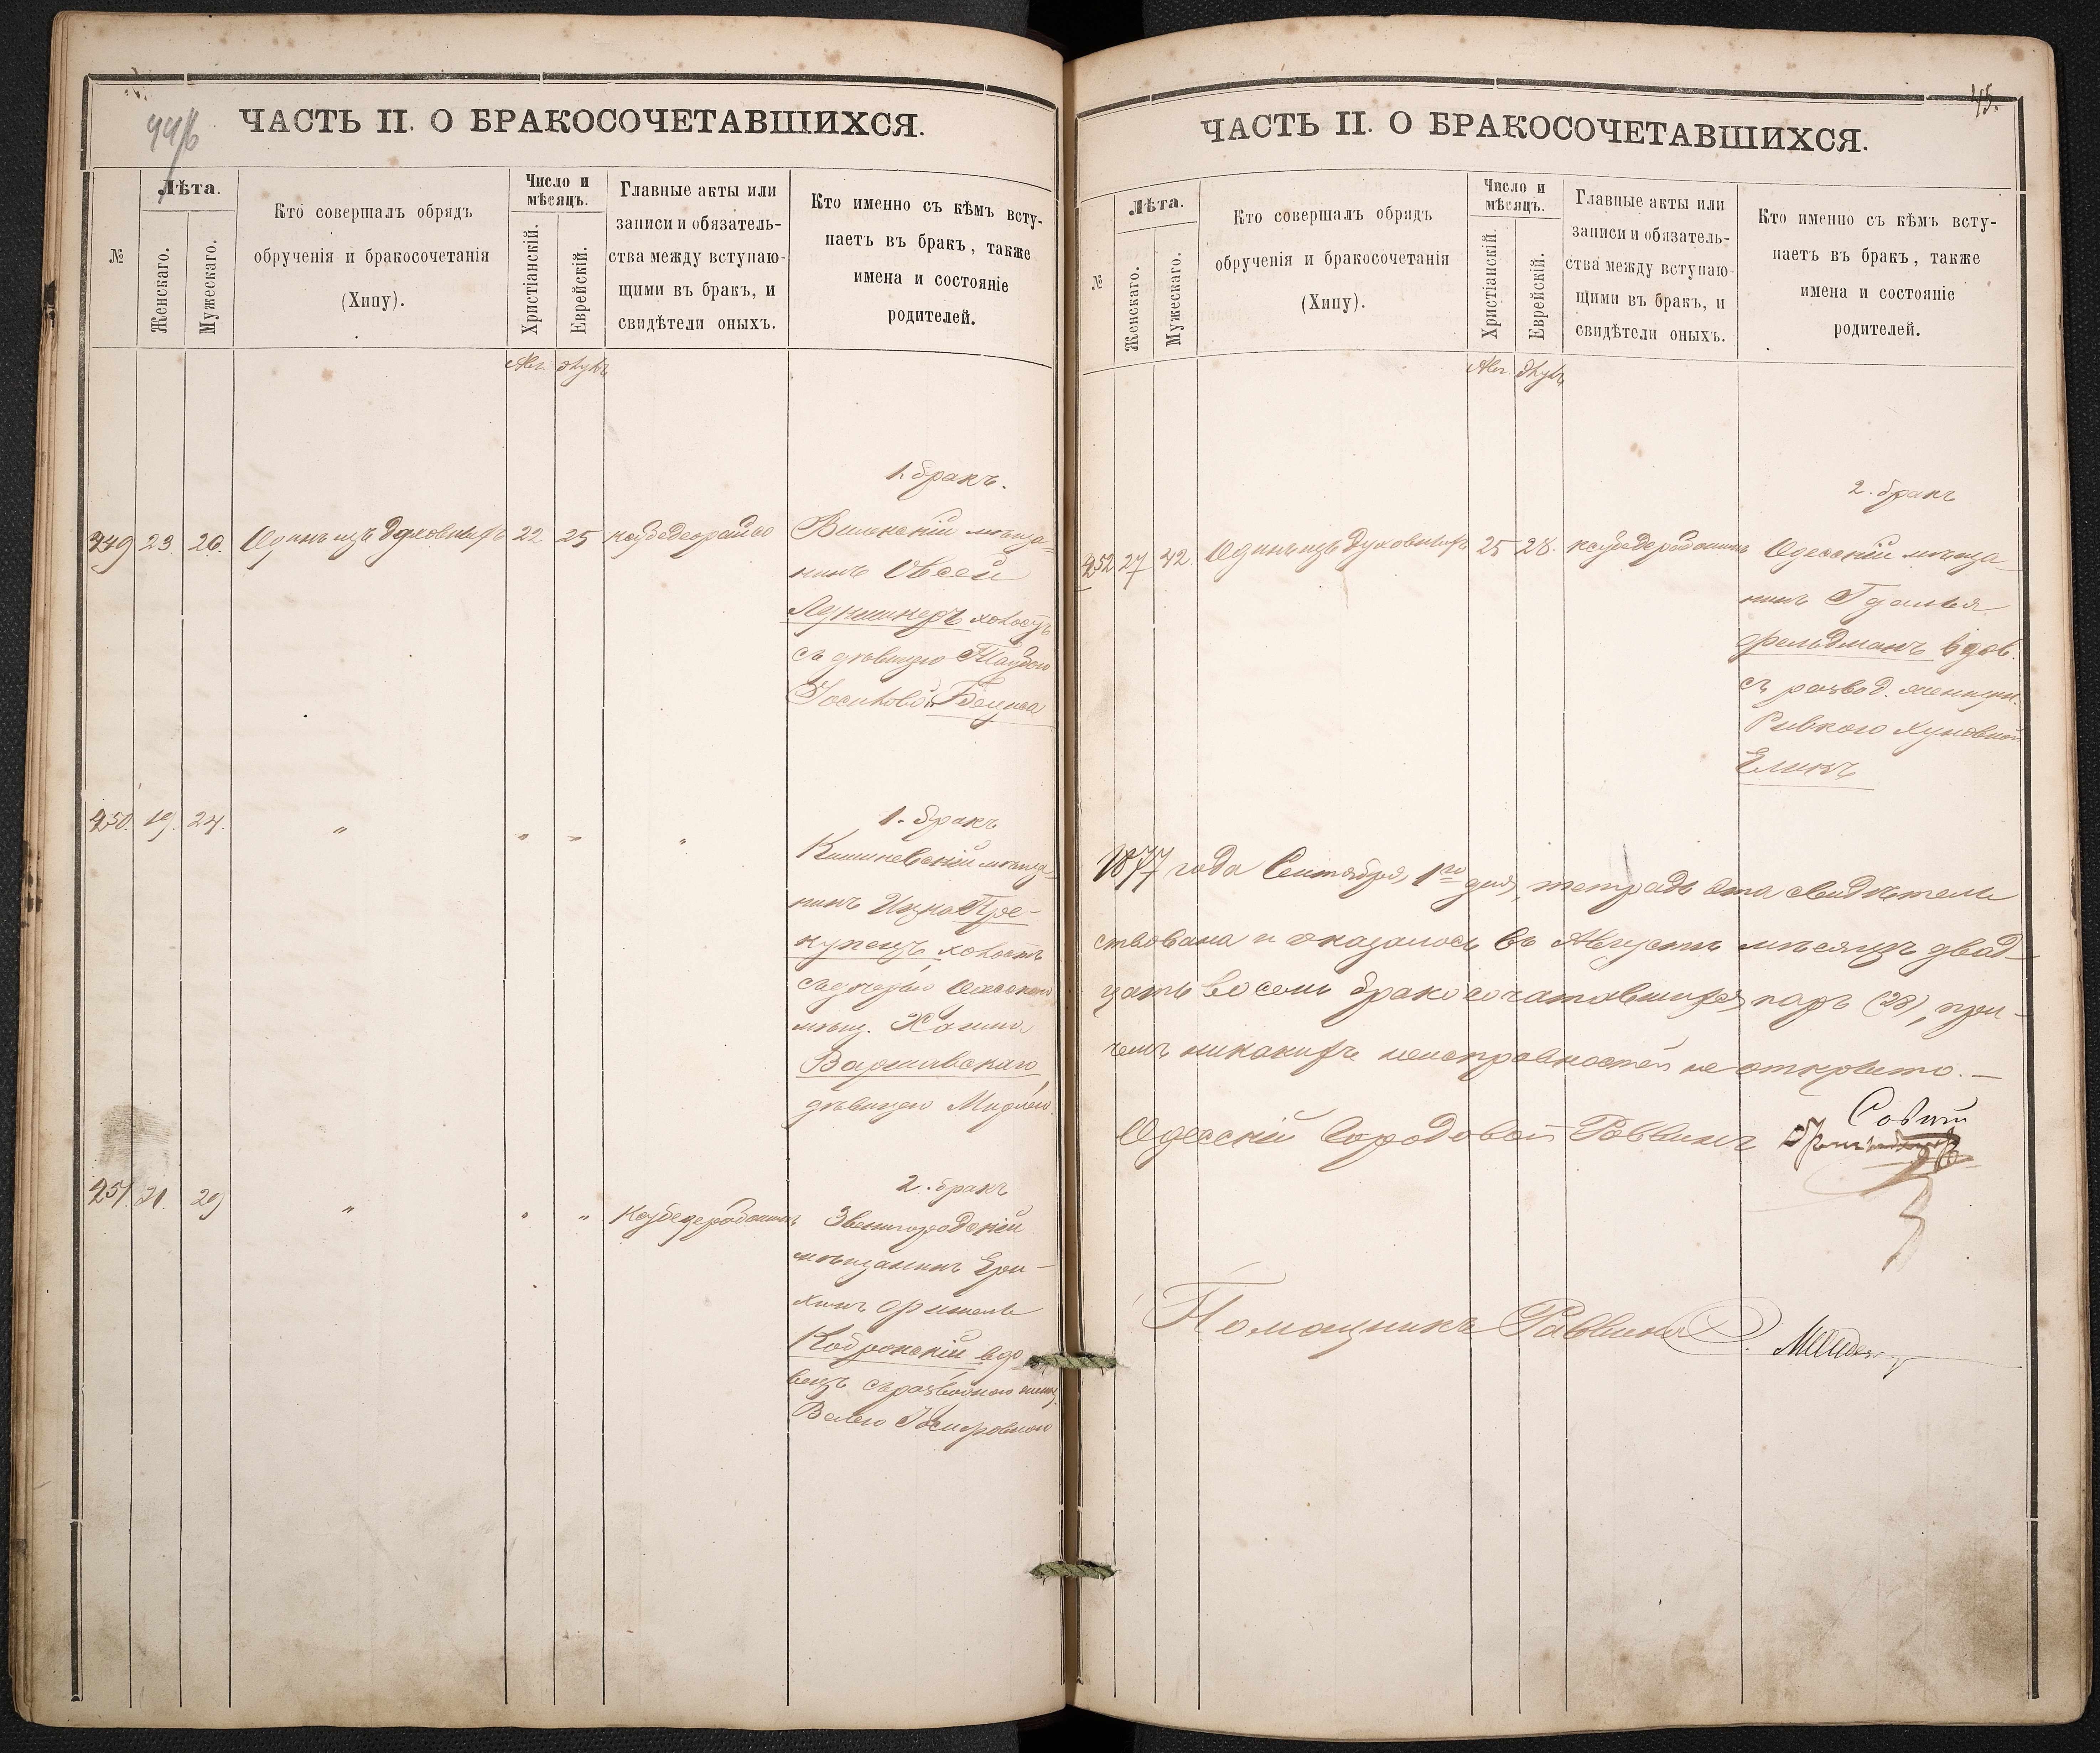 44/б
ЧАСТЬ II. О БРАКОСОЧЕТАВШИХСЯ.
№
Лѣта.
Женскаго.
Мужескаго.
Кто совершалъ обрядъ
обрученія и бракосочетанія
(Хипу).
Число и
мѣсяцъ.
Христіанскій.
Еврейскій.
Главные акты или
записи и обязатель-
ства между вступаю-
щими въ бракъ, и
свидѣтели оныхъ.
Кто именно съ кѣмъ всту-
паетъ въ бракъ, также
имена и состояніе
родителей.
Авг. Элулъ
1. бракъ.
449 23. 26. Одинъ изъ духовныхъ 22 25 Виленскій мѣща-
нинъ Овсей
холостъ
съ дѣвицею Таубою
450. 19. 24. " " " "
1. бракъ
Кишиневскій мѣща-
нинъ Ицко Пре-
купецъ холостъ
съ дочерью Одесскаго
мѣщ. Хаима
Варшавскаго
дѣвицею
451. 21. 29 " " "
2. бракъ
Звенигородскій
мѣщанинъ Ери-
химъ Фишель
Кобринскій вдо-
вецъ съ разводною женщ.
45.
ЧАСТЬ II. О БРАКОСОЧЕТАВШИХСЯ.
№
Лѣта.
Женскаго.
Мужескаго.
Кто совершалъ обрядъ
обрученія и бракосочетанія
(Хипу).
Число и
мѣсяцъ.
Христіанскій.
Еврейскій.
Главные акты или
записи и обязатель-
ства между вступаю-
щими въ бракъ, и
свидѣтели оныхъ.
Кто именно съ кѣмъ всту-
паетъ въ бракъ, также
имена и состояніе
родителей.
Авг. Элулъ
2. бракъ
452 27 42. Одинъ изъ духовныхъ 25 28. Одесскій мѣща-
нинъ Гдалья
Фельдманъ вдов.
съ развод. женщин.
Ривкою
1877 года Сентября 1го дня, тетрадь эта свидѣтель
ствована и оказалось въ Августѣ мѣсяцѣ двад-
цать восемь бракосочетавшихся паръ (28), при-
чемъ никакихъ неисправностей не открыто. —
Одесскій Городовой Раввинъ
Помощникъ Раввина